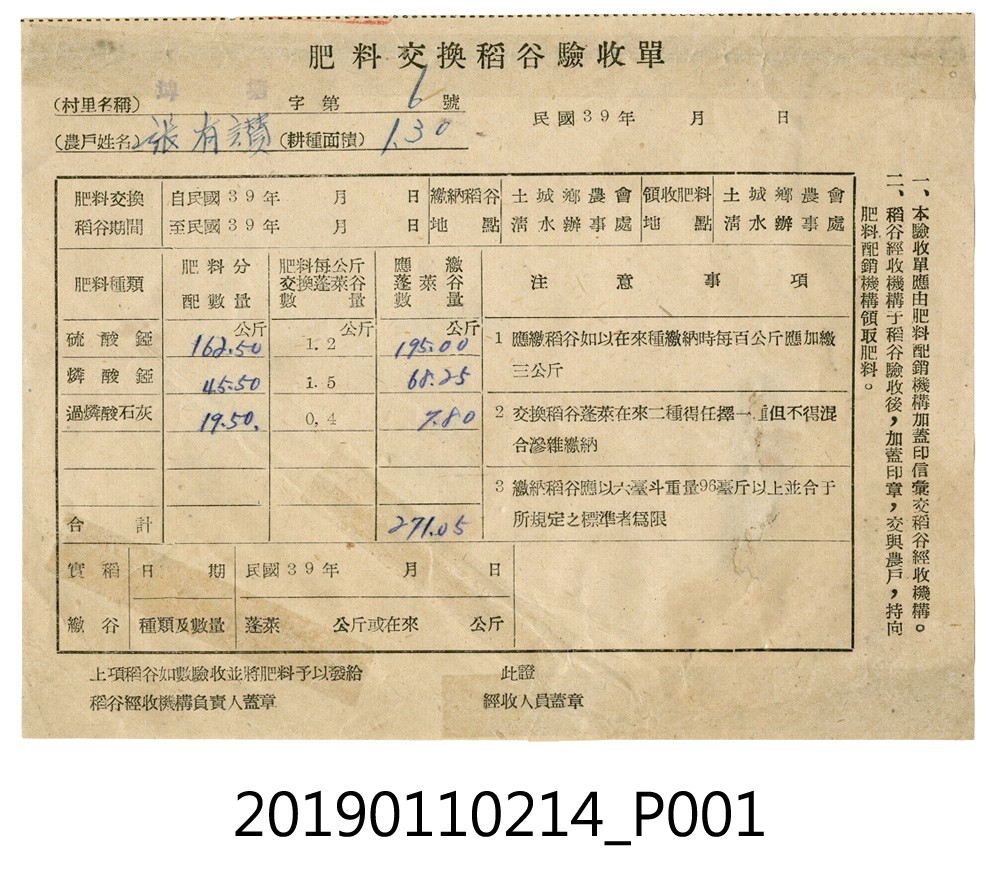 肥料交換稻谷驗收單
(村里名稱) 字第 6 號
民國39年 月 日
(農戶姓名) 張有讚 (耕種面積) 1.30
肥料交換 自民國39年 月 日 繳納稻谷 土城鄉農會 領收肥料 土城鄉農會
稻谷期間 至民國39年 月 日 地點 清水辦事處 地點 清水辦事處
肥料種類 肥料分配數量 肥料每公斤交換蓬萊谷數量 應繳蓬萊谷數量 注意事項
公斤 公斤 公斤
硫酸錏 162.50 1.2 195.00
燐酸錏 45.50 1.5 68.25
過燐酸石灰 19.50. 0,4 7.80
合計 271.05
1 應繳稻谷如以在來種繳納時每百公斤應加繳
三公斤
2 交換稻谷蓬萊在來二種得任擇一種但不得混
合滲雜繳納
3 繳納稻谷應以六臺斗重量96臺斤以上並合于
所規定之標準者為限
實繳稻谷
日期 民國39年 月 日
種類及數量 蓬萊 公斤或在來 公斤
上項稻谷如數驗收並將肥料予以發給 此證
稻谷經收機構負責人蓋章 經收人員蓋章
一、本驗收單應由肥料配銷機構加蓋印信彙交稻谷經收機構。
二、稻谷經收機構于稻谷驗收後，加蓋印章，交與農戶，持向
肥料配銷機構領取肥料。
20190110214_P001